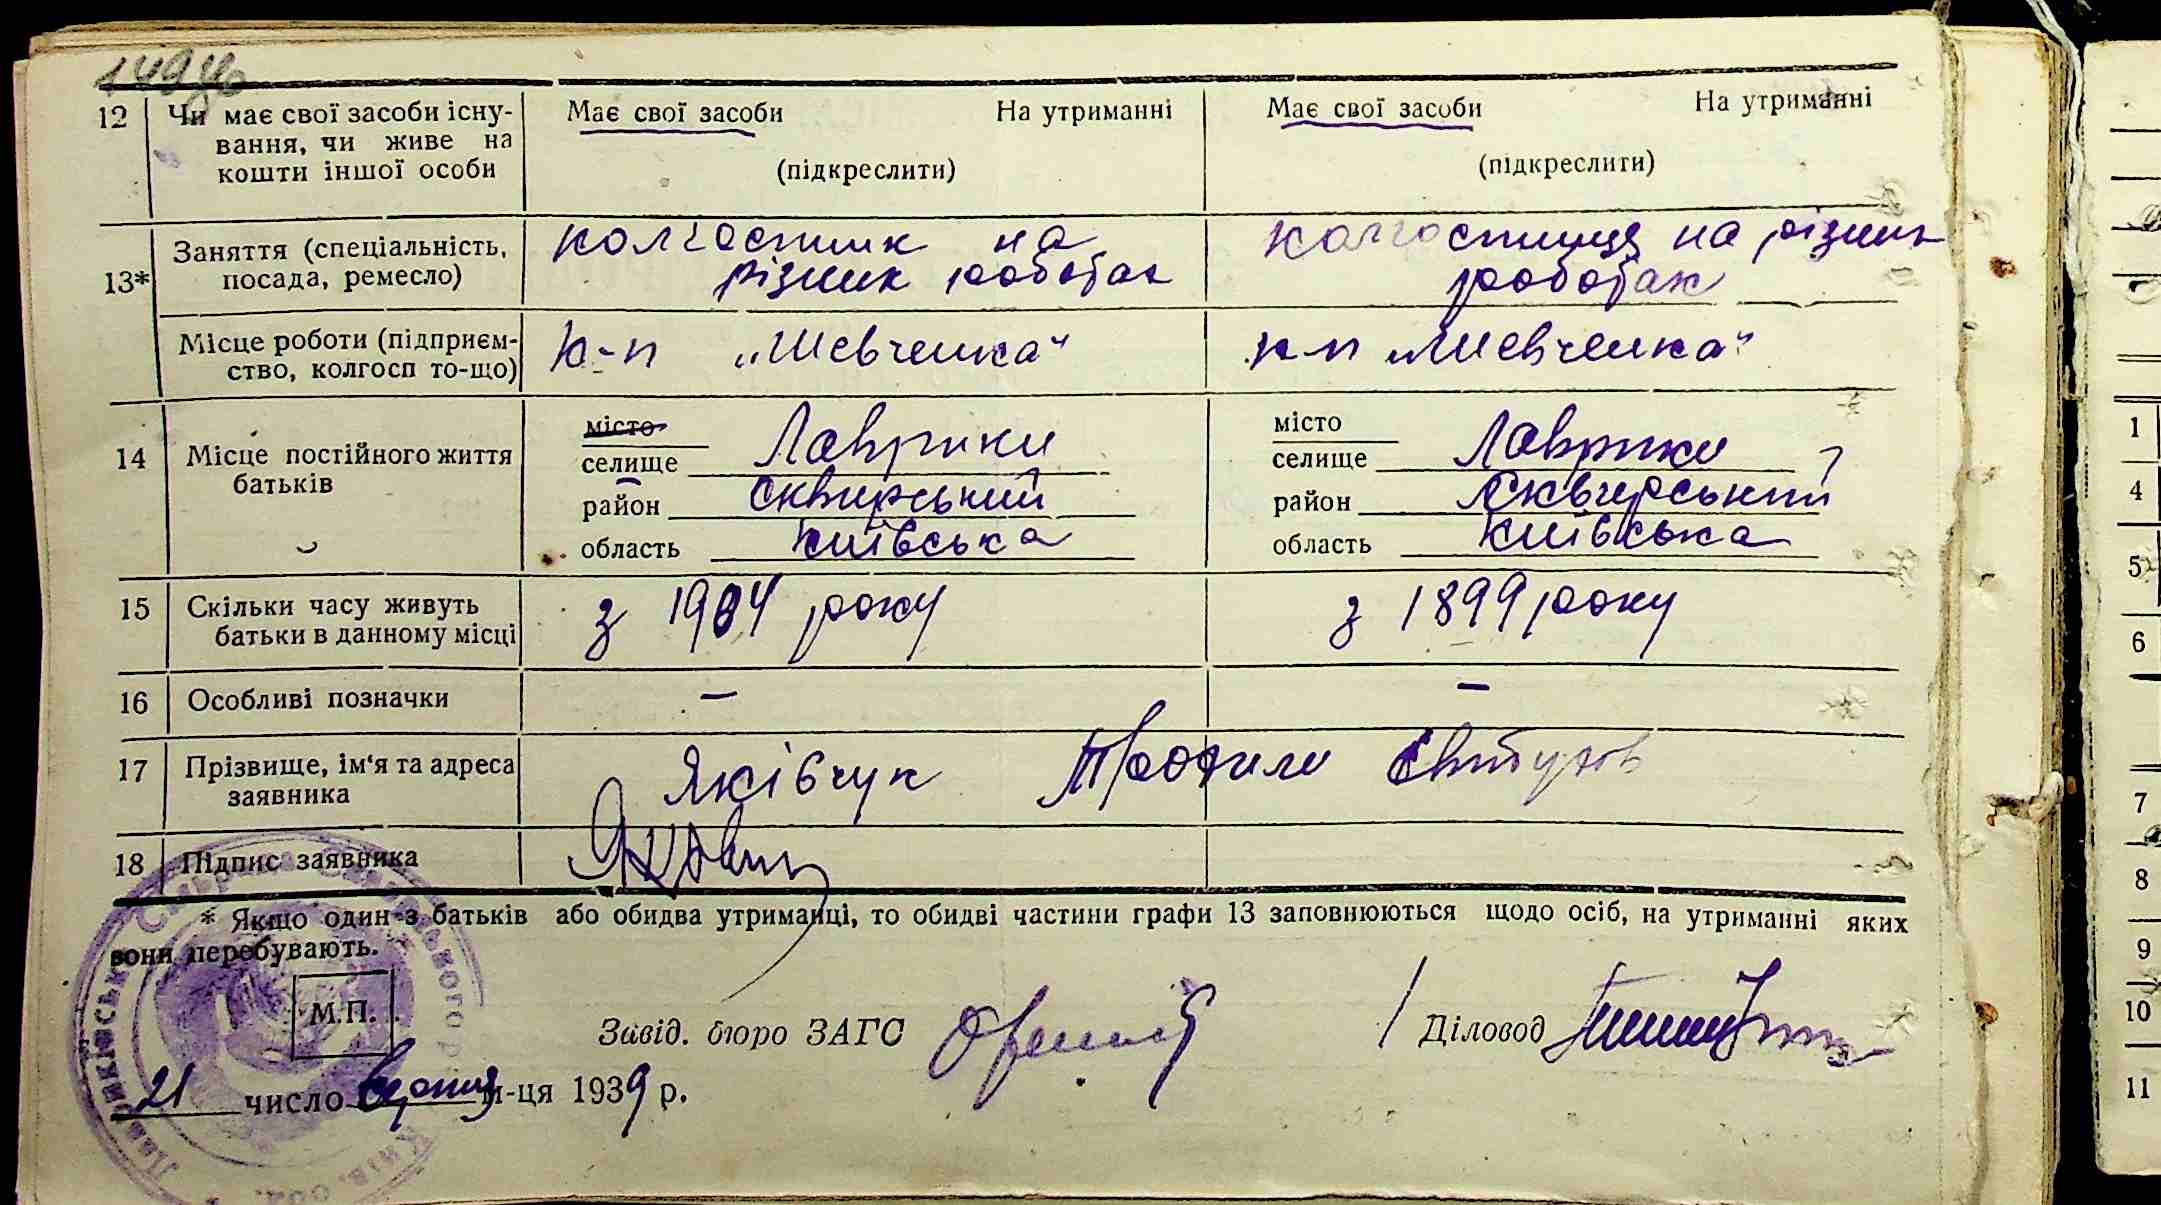 149
12 Чи має свої засоби існу-
вання, чи живе на
кошти іншої особи
Має свої засоби На утриманні
(підкреслити)
Має свої засоби На утриманні
(підкреслити)
13* Заняття (спеціальність,
посада, ремесло)
колгоспник на
різних роботах
колгоспниця на різних
роботах
Місце роботи (підприєм-
ство, колгосп то-що)
к-п „Шевченка“
к-п „Шевченка“
14 Місце постійного життя
батьків
місто
селище Лаврики
район Сквирський
область Київська
місто
селище Лаврики
район Сквирський
область Київська
15 Скільки часу живуть
батьки в данному місці
з 1904 року
з 1899 року
16 Особливі позначки
–
–
17 Прізвище, ім'я та адреса
заявника
Яківчук Евтухов
18 Підпис заявника
* Якщо один з батьків або обидва утриманці, то обидві частини графи 13 заповнюються щодо осіб, на утриманні яких
вони перебувають.
М.П.
Завід. бюро ЗАГС
Діловод
21 число вересня м-ця 1939 р.
1
4
5
6
7
8
9
10
11